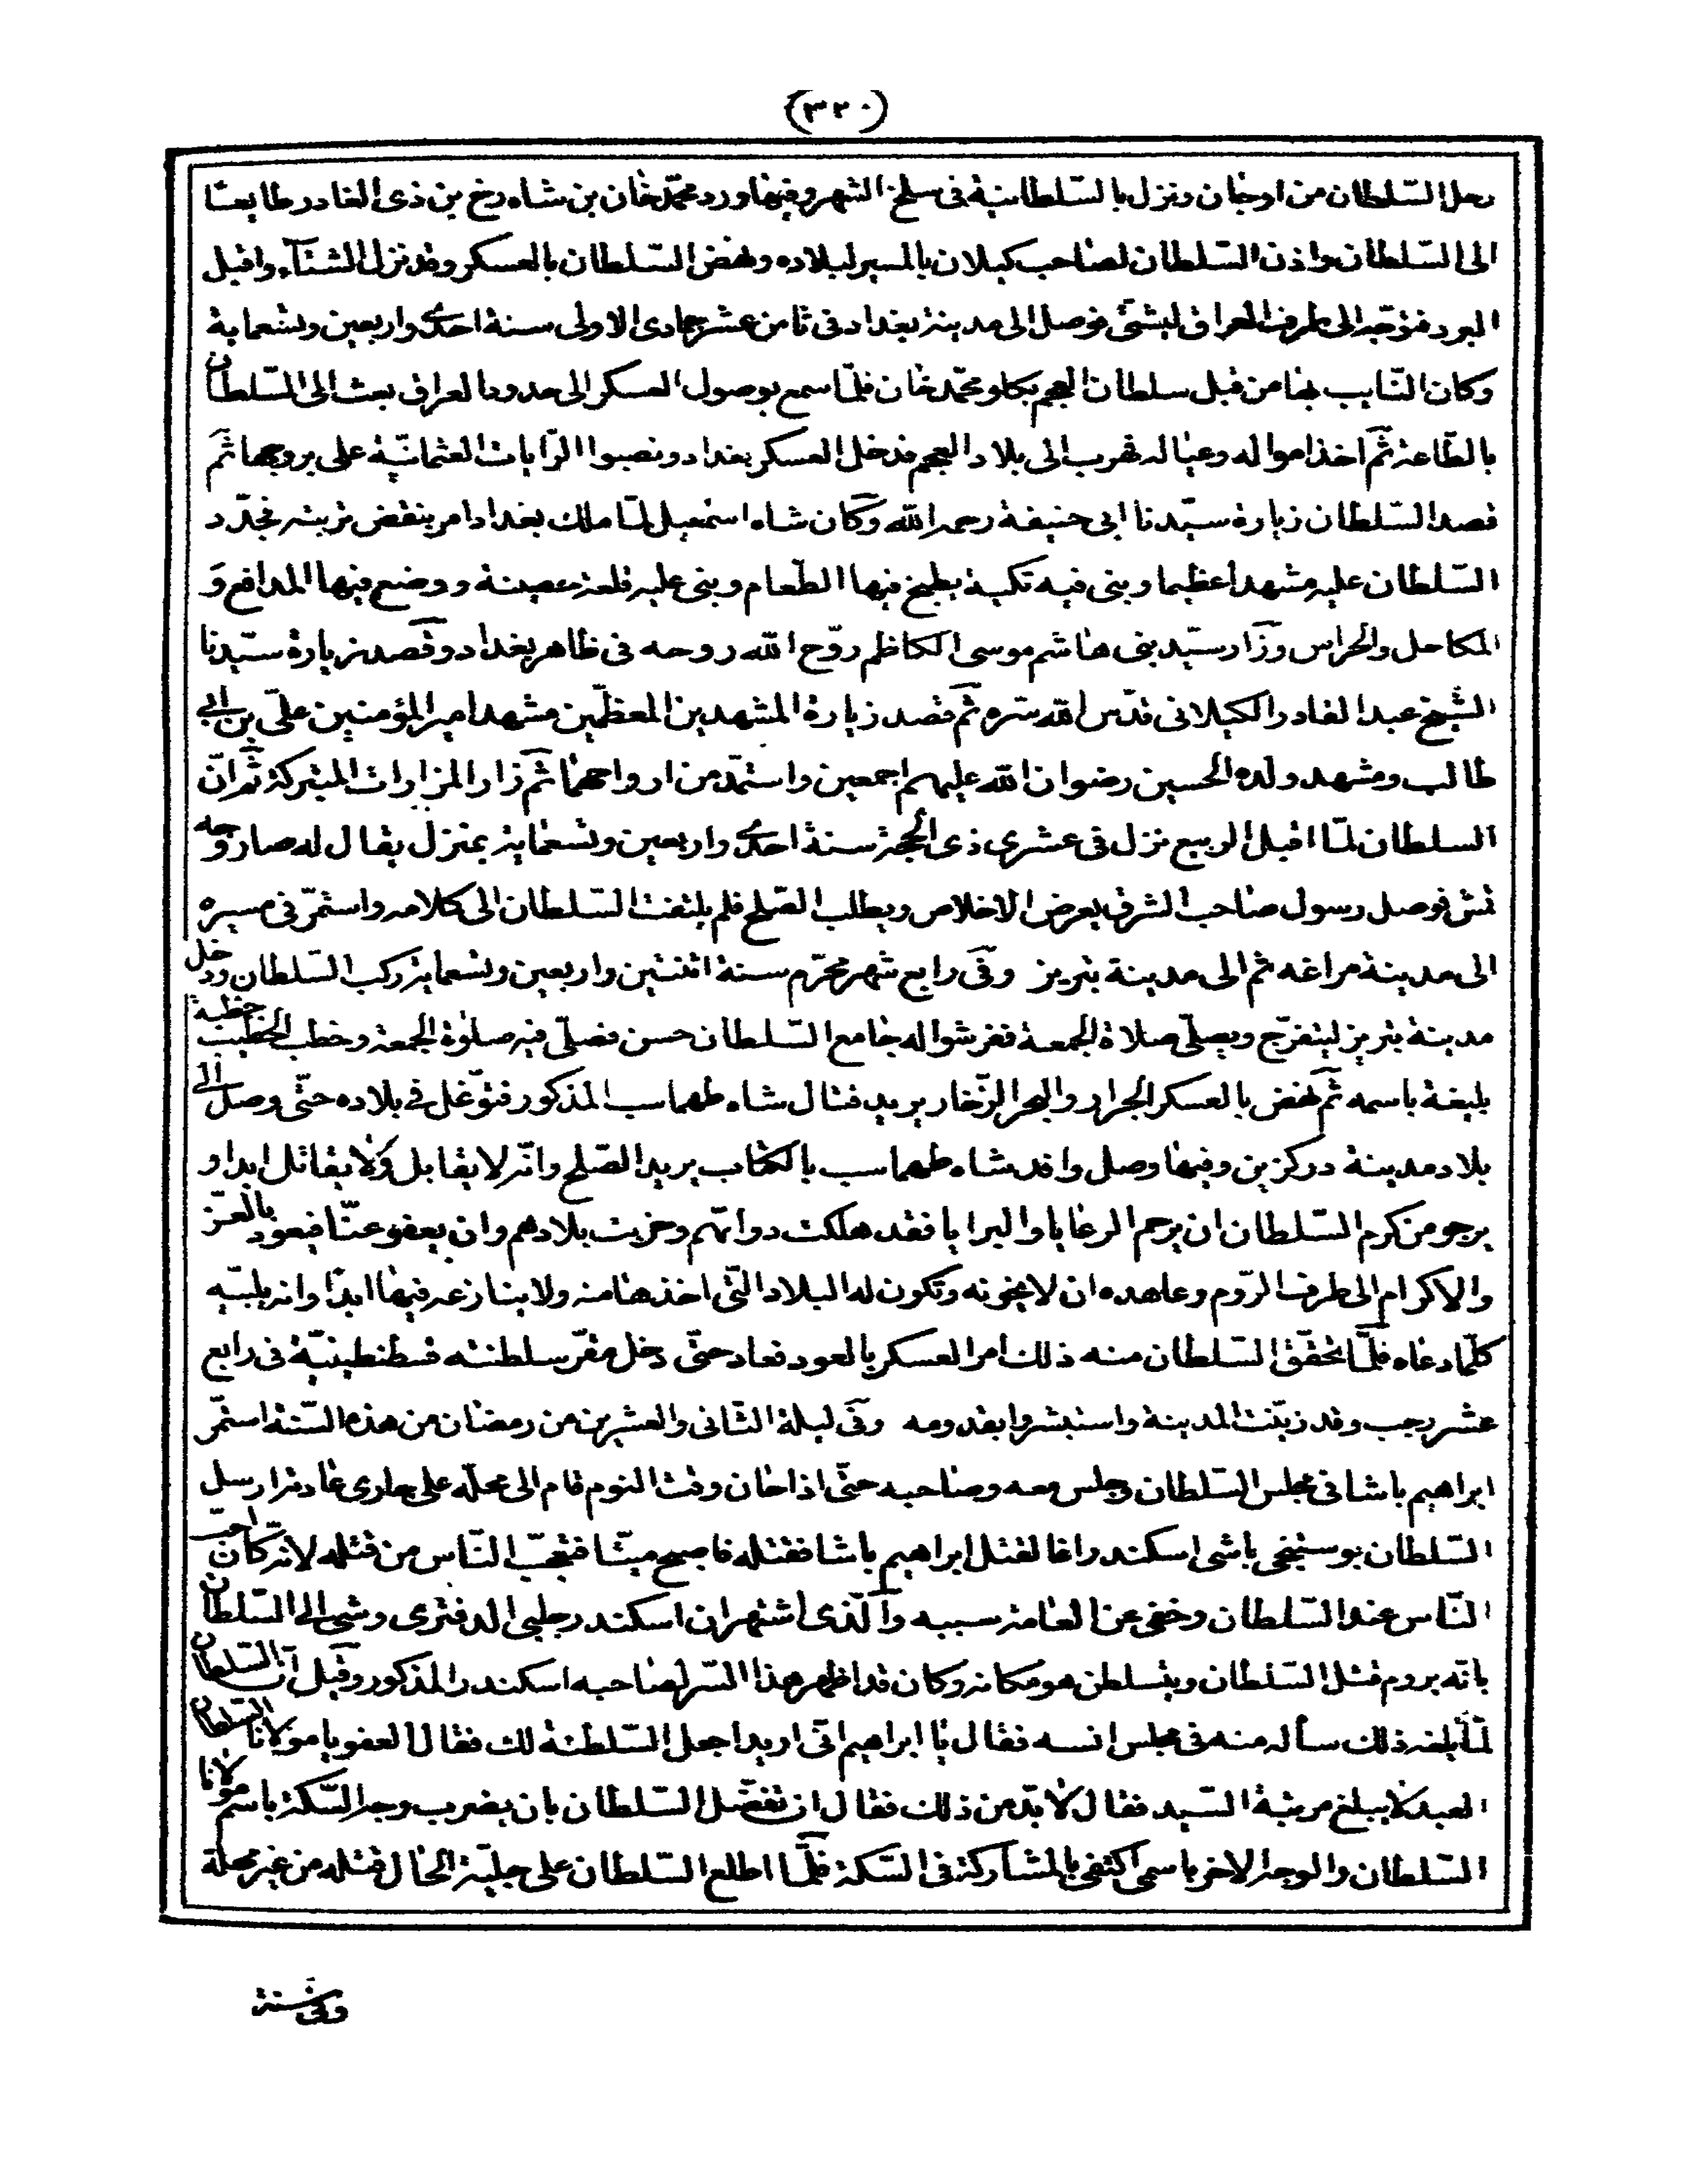 (٣٢٠)
رحل السّلطان من اوجان ونزل بالسّلطانية فى سلخ الشهر وفيها ورد محمّد خان بن شاه رخ بن ذى الغادر طايعا
الى السّلطان واذن السّلطان لصاحب كيلان بالمسير لبلاده ونهض السّلطان بالعسكر وقد نزل الشتآء واقبل
البرد فتوجّه الى طرف العراق ليشتّى فوصل الى مدينة بغداد فى ثامن عشر جمادى الاولى سنة احدى واربعين وتسعماية
وكان النّايب بها من قبل سلطان العجم بكلو محمّد خان فلمّا سمع بوصول العسكر الى حدود العراق بعث الى السّلطان
بالطّاعة ثمّ اخذ امواله وعياله فهرب الى بلاد العجم فدخل العسكر بغداد ونصبوا الرّايات العثمانيّة على بروجها ثمّ
قصد السّلطان زيارة سيّدنا ابى حنيفة رحمه الله وكان شاه اسمعيل لمّا ملك بغداد امر بنقض تربته فجدّد
السّلطان عليه مشهدا عظيما وبنى فيه تكية يطبخ فيها الطّعام وبنى عليه قلعة حصينة ووضع فيها المدافع و
المكاحل والحراس وزار سيّد بنى هاشم موسى الكاظم روّح الله روحه فى ظاهر بغداد وقصد زيارة سيّدنا
الشّيخ عبد القادر الكيلانى قدّس الله سرّه ثمّ قصد زيارة المشهدين المعظّمين مشهد امير المؤمنين علىّ بن ابى
طالب ومشهد ولده الحسين رضوان الله عليهم اجمعين واستمدّ من ارواحهما ثمّ زار المزارات المتبركة ثمّ انّ
السلطان لمّا اقبل الربيع نزل فى عشرى ذى الحجّة سنة احدى واربعين وتسعماية بمنزل يقال له صاروجه
تش فوصل رسول صاحب الشرق يعرض الاخلاص ويطلب الصّلح فلم يلتفت السّلطان الى كلامه واستمرّ فى مسيره
الى مدينة مراغه ثم الى مدينة تبريز وفى رابع شهر محرّم سنة اثنتين واربعين وتسعماية ركب السّلطان ودخل
مدينة تبريز ليتفرّج ويصلّى صلاة الجمعة ففرشوا له جامع السّلطان حسن فصلّى فيه صلوة الجمعة وخطب الخطيب خطبة
بليغة باسمه ثمّ نهض بالعسكر الجرار والبحر الزّخار يريد قتال شاه طهماسب المذكور فتوغّل فى بلاده حتّى وصل الى
بلاد مدينة دركزين وفيها وصل وافد شاه طهماسب بالكتاب يريد الصّلح وانّه لا يقابل ولا يقاتل ابدا و
يرجو من كرم السّلطان ان يرحم الرعايا والبرايا فقد هلكت دوابّهم وخربت بلادهم وان يعفو عنّا فيعود بالعزّ
والاكرام الى طرف الرّوم وعاهده ان لا يخونه وتكون له البلاد الّتى اخذها منه ولا ينازعه فيها ابدا وانه يلبّيه
كلّما دعاه فلمّا تحقّق السّلطان منه ذلك امر العسكر بالعود فعاد حتّى دخل مقرّ سلطنته قسطنطينيّة فى رابع
عشر رجب وقد زيّنت المدينة واستبشروا بقدومه وفى ليلة الثّانى والعشرين من رمضان من هذه السّنة استمرّ
ابراهيم باشا فى مجلس السّلطان وجلس معه وصاحبه حتّى اذا حان وقت النوم قام الى محلّه على جارى عادته ارسل
السّلطان بوستنجى باشى اسكندر اغا لقتل ابراهيم باشا فقتله فاصبح ميتا فتعجّب النّاس من قتله لانّه كان احبّ
النّاس عند السّلطان وخفى عن العامة سببه والّذى اشتهر ان اسكندر جلبى الدفترى وشى الى السّلطان
بانّه يروم قتل السّلطان ويتسلطن هو مكانه وكان قد اظهر هذا السّر لصاحبه اسكندر المذكور وقيل انّ السّلطان
لمّا بلغه ذلك سأله منه فى مجلس انسه فقال يا ابراهيم انّى اريد اجعل السّلطنة لك فقال العفو يا مولانا السّلطان
العبد لا يبلغ مرتبة السّيد فقال لا بدّ من ذلك فقال ان تفضّل السّلطان بان يضرب وجه السّكة باسم مولانا
السّلطان والوجه الاخر باسمى اكتفى بالمشاركة فى السّكة فلمّا اطلع السّلطان على جليّة الحال قتله من غير مهلة
وفى سنة